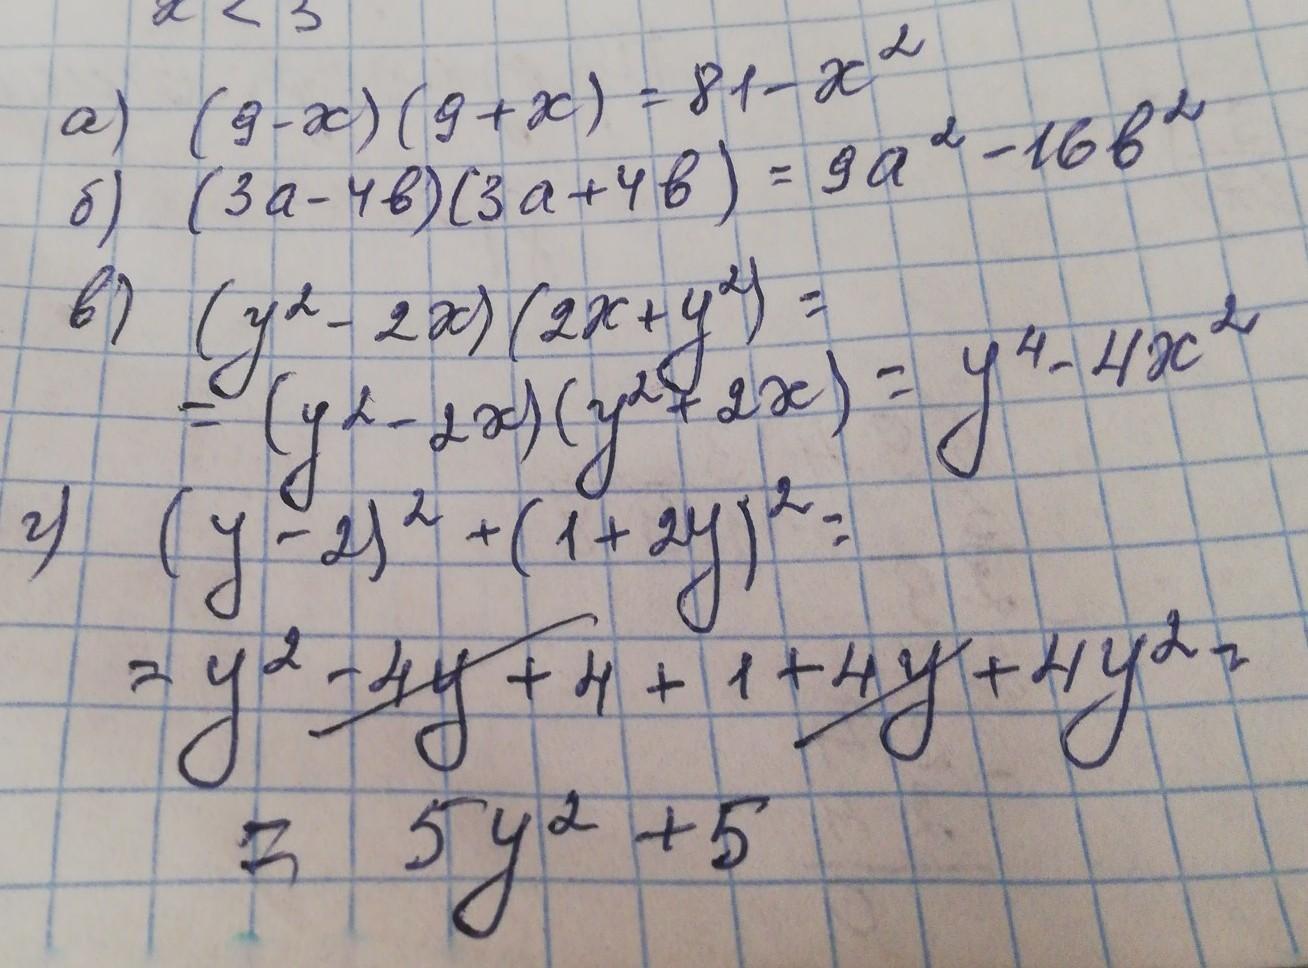 x < 3
а) (9-x)(9+x) = 81-x²
б) (3a-4b)(3a+4b) = 9a²-16b²
в) (y²-2x)(2x+y²) =
= (y²-2x)(y²+2x) = y⁴-4x²
г) (y-2)²+(1+2y)² =
= y²-4y+4+1+4y+4y² =
= 5y²+5